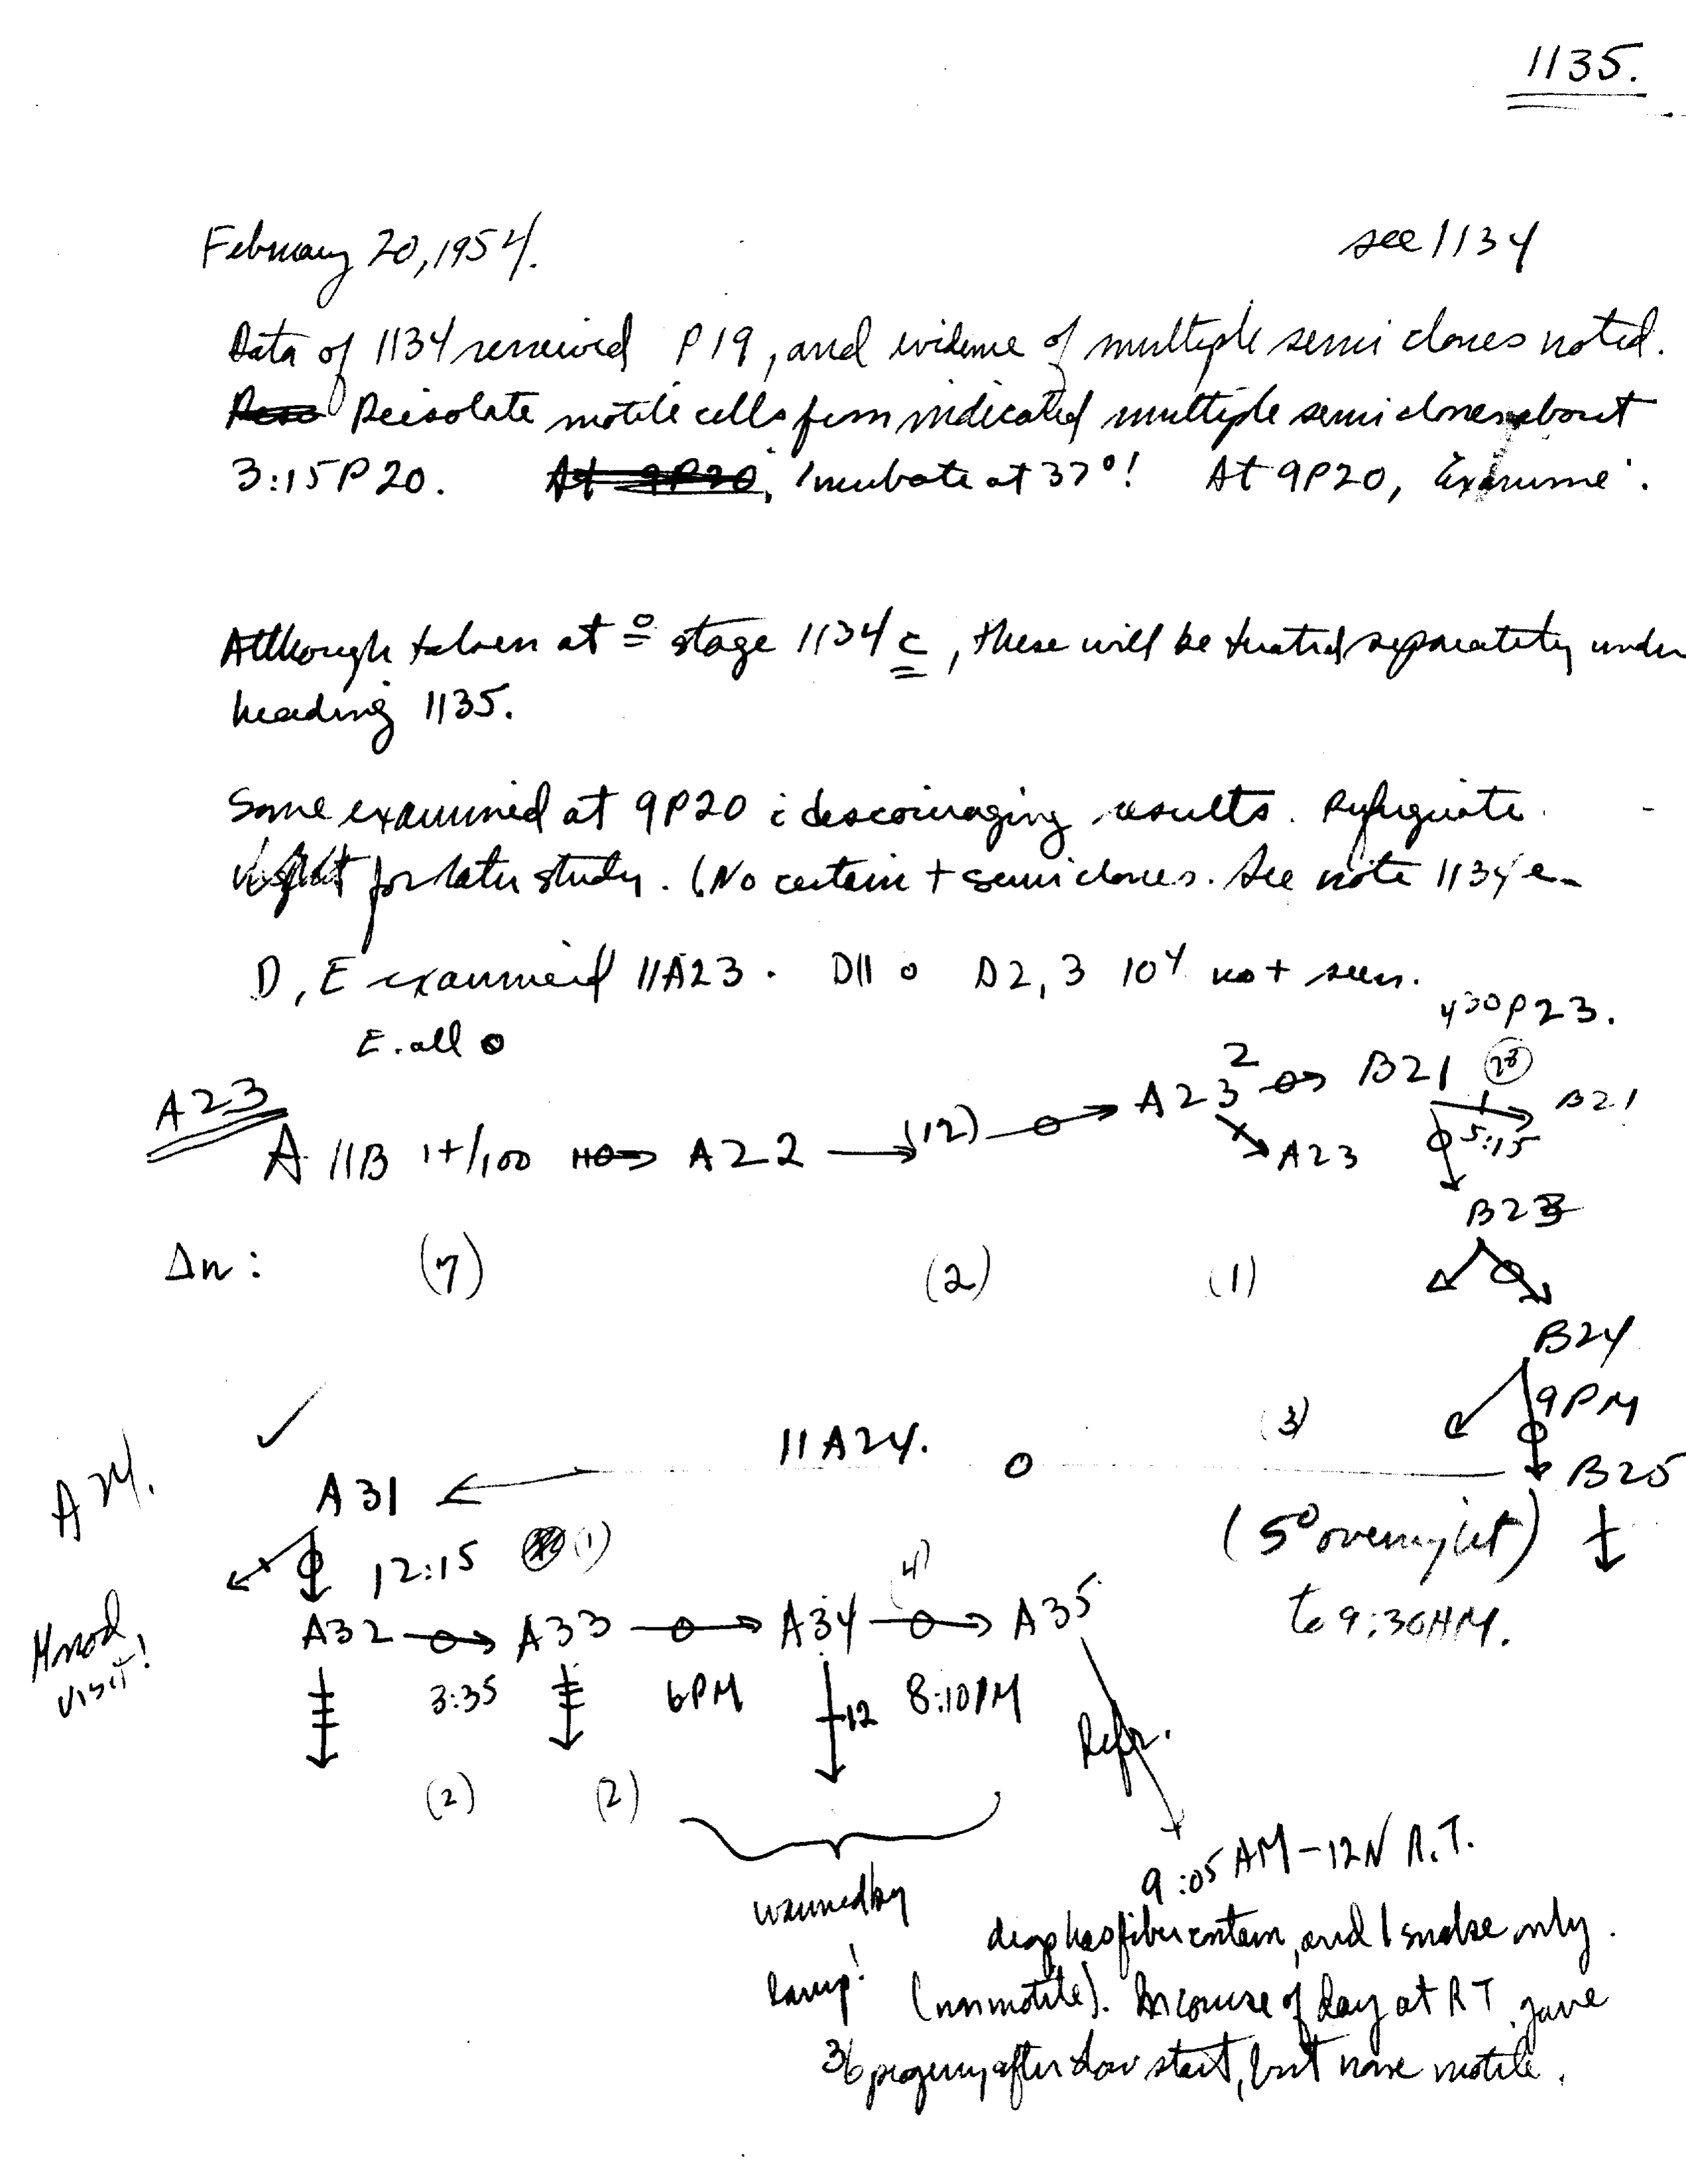 1135.
February 20, 1954.
see 1134
Data of 1134 reviewed P19, and evidence of multiple semi clones noted.
Reisolate motile cells from indicated multiple semi clones about
3:15P20. At 9P20, Incubate at 37°! At 9P20, Examine:
Although taken at stage 1134 c, these will be treated separately under
heading 1135.
Some examined at 9P20 c discouraging results. Refrigerate
for later study. (No certain + semi clones. See note 1134 e
D, E examined 11A23. D11 o D2, 3 10^4 no + seen.
E. all o
430P23.
A23
A 11B 1+/100 A22 (12) A23 2 B21 28 B21
A23 5:15
B23
Δn: (7) (2) (1)
B24
9PM
A24. 11A24. o (3)
A31 B25
12:15 (1) (5° overnight)
to 9:30AM.
Monod visit!
A32 A33 A34 (4) A35
3:35 6PM 12 8:10PM Refr.
(2) (2)
warmed by
lamp!
9:05 AM - 12N R.T.
drop has fiber contam, and 1 snake only.
(nonmotile). In course of day at RT gave
36 progeny after slow start, but none motile.